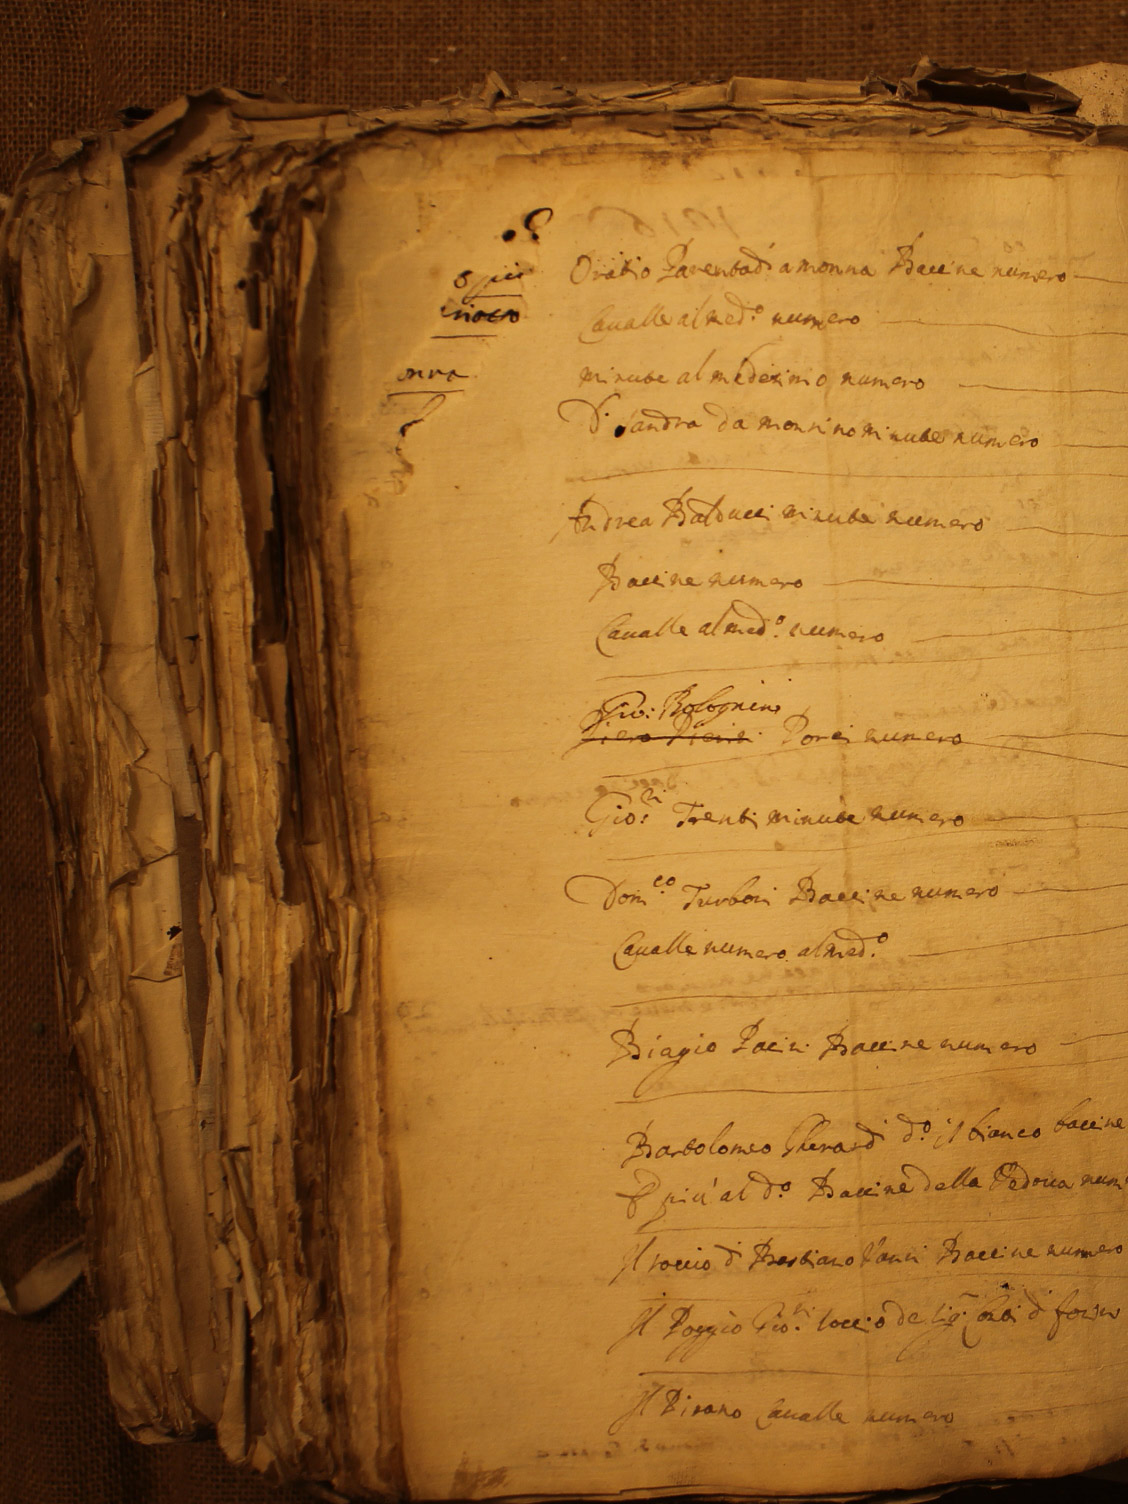 onna
Oratio Parentadi a monna Baccine numero
Caualle al med.º numero
minute al medesimo numero
D. Sandra da monsino minute numero
Andrea Balducci minute numero
Baccine numero
Caualle al med.º numero
Gio: Bolognini
Piero Pierini Porci numero
Gio:ni Trenti minute numero
Dom.co Turboni Baccine numero
Caualle numero al med.º
Biagio Pacini Baccine numero
Bartolomeo Gherardi d.º il bianco baccine
E piu' al d.º Baccine della Vedoua num
Il soccio di Bastiano Vanni Baccine numero
Il Poggio Gio:ni soccio de Sig.ri di
Il Pisano Caualle numero